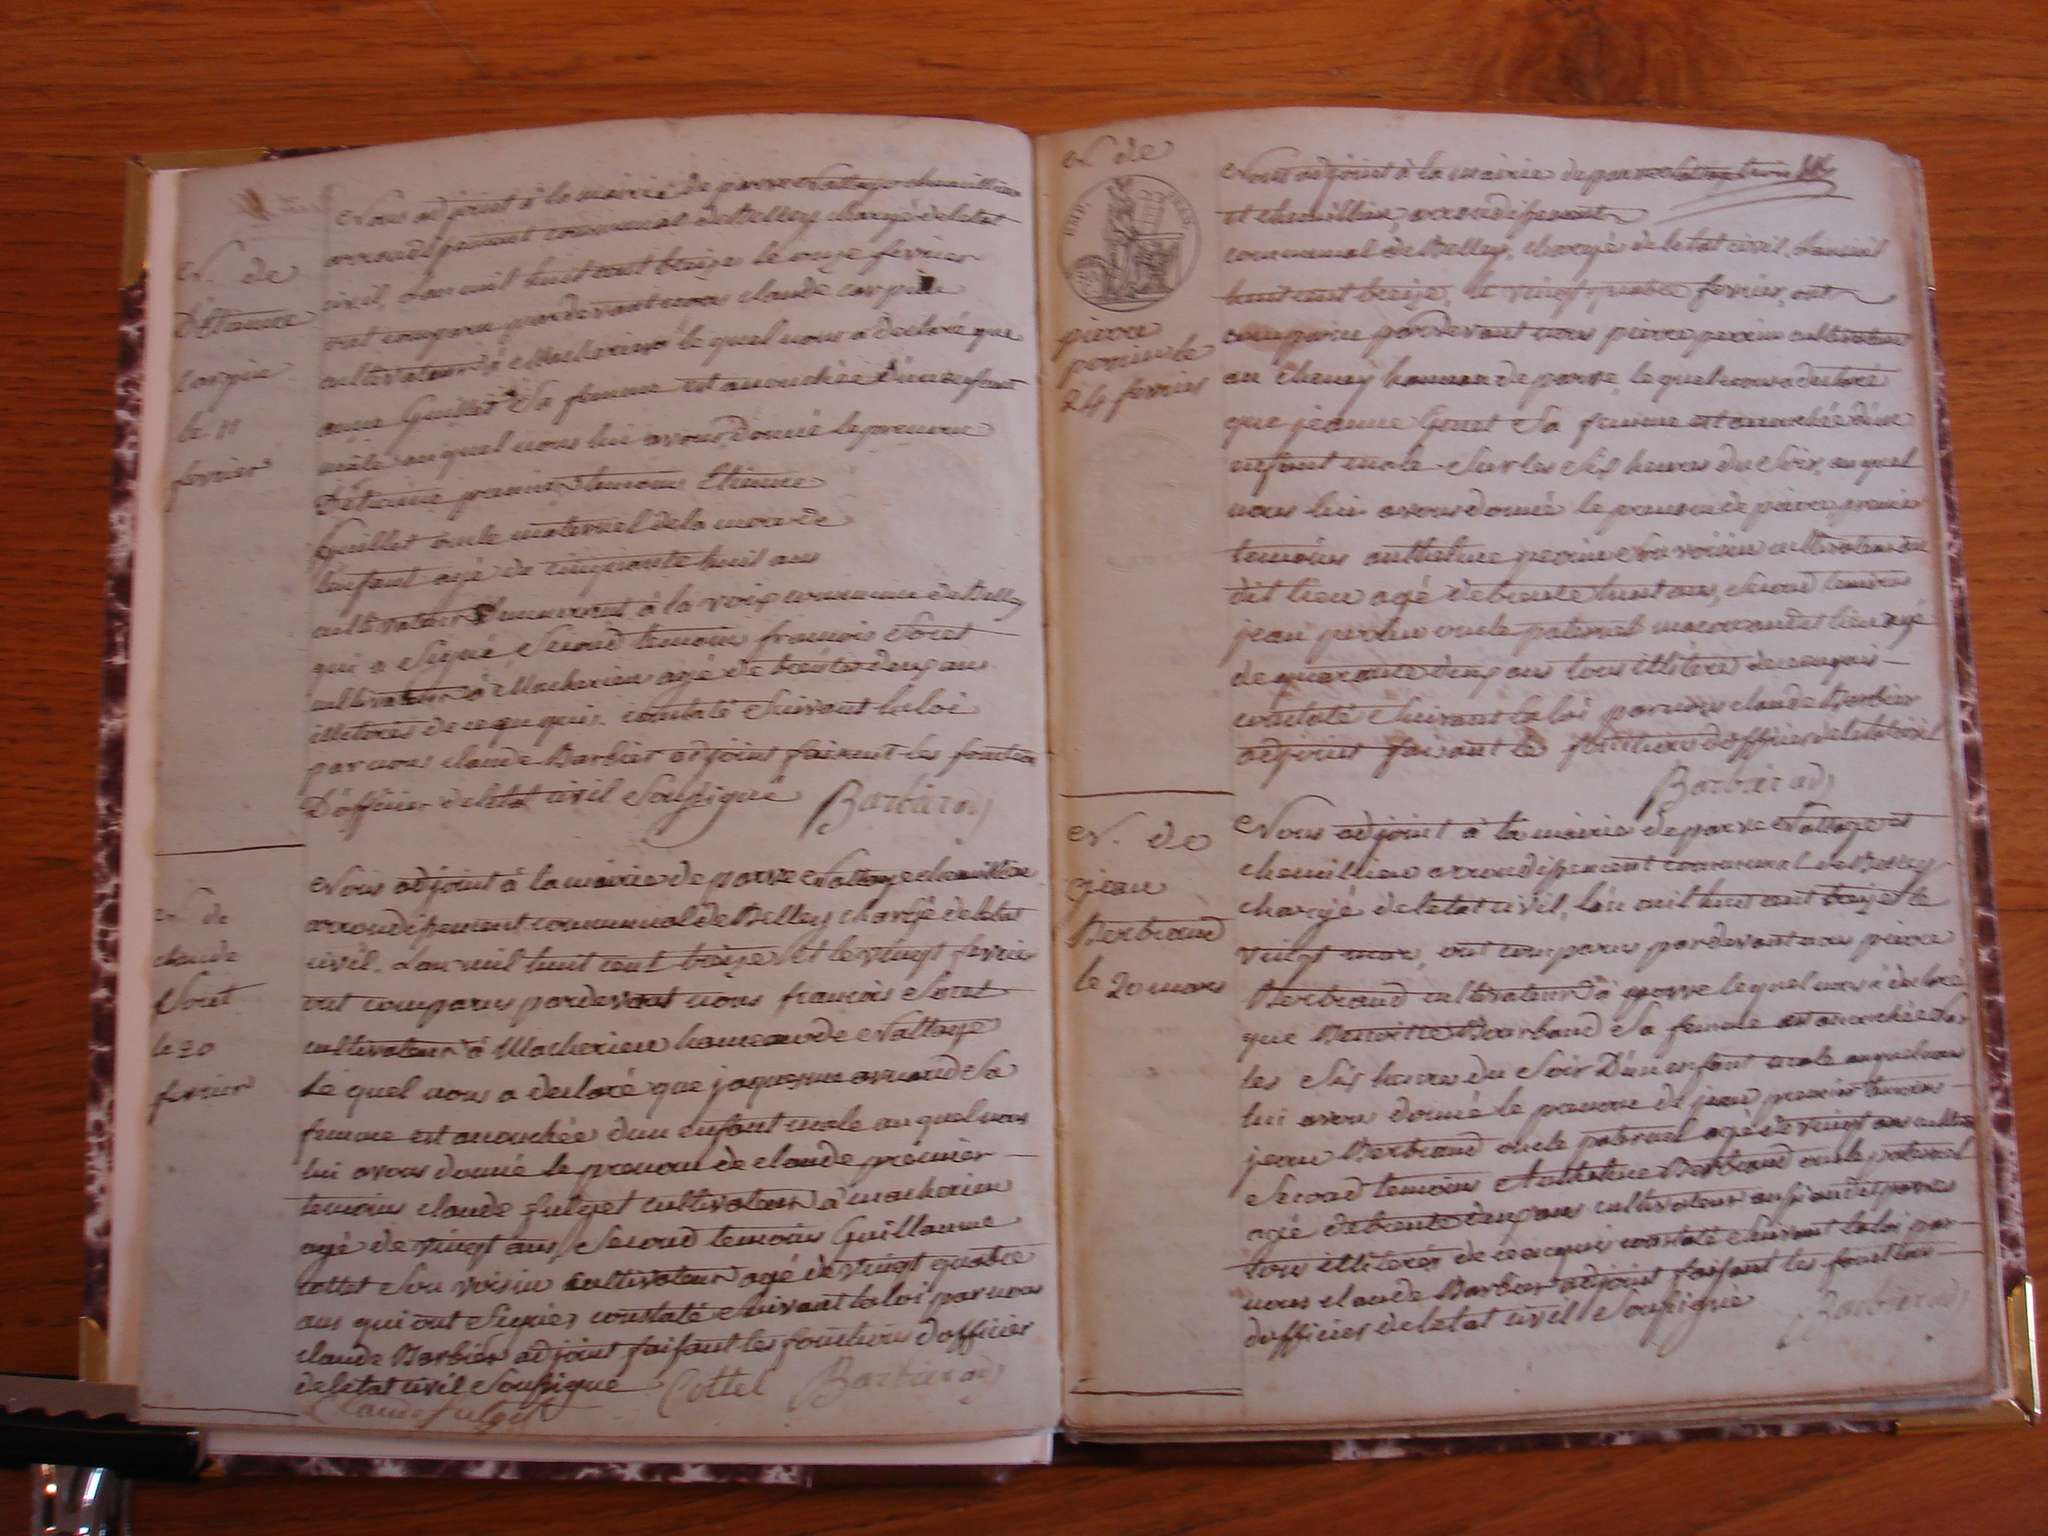 N. de
D'Etienne
Carpin
le 11
fevrier
Nous adjoint à la mairie de parve Nattage chemillien
arrondissement communal de Belley chargé de letat
civil, Lan mil huit cent treize le onze fevrier
ont comparu pardevant nous claude carpin
cultivateur à Macherieu le quel nous a declaré que
anne Guillet Sa femme est acouchée d'un enfant
mâle auquel nous lui avons donné le prenom
D'étienne premier temoin Etienne
Guillet oncle maternel de la mere de
lenfant agé de cinquante huit ans
cultivateur demeurant à la commune de Belley
qui a Signé Second temoin francois Soret
cultivateur à Macherieu agé de trente deux ans
illiterés de ce enquis. constaté Suivant la loi
par nous claude Barbier adjoint faisant les fonction
D'officier de letat civil Soussigné Barbier adj
N. de
claude
Soret
le 20
fevrier
Nous adjoint à la mairie de parve Nattage chemillien
arrondissement communal de Belley chargé de letat
civil. Lan mil huit cent treize et le vingt fevrier
ont comparus pardevant nous francois Soret
cultivateur à Macherieu hameau de Nattage
Le quel nous a declaré que Sa
femme est acouchée dun enfant male au quel nous
lui avons donné le prenom de claude premier
temoins claude fulget cultivateur à macherieu
agé de vingt ans, Second temoins Guillaume
cottet Son voisin cultivateur agé de vingt quatre
ans qui ont Signés constaté Suivant la loi par nous
claude Barbier adjoint faisant les fonctions d'officier
de letat civil Soussigné Cottet Barbier adj
Claude fulget
N. de
EMP. FRAN.
pierre
perrin le
24 fevrier
Nous adjoint à la mairie de parve
et chemillien, arrondissement
communal de Belley, chargé de letat civil. Lan mil
huit cent treize, le vingt quatre fevrier, ont
comparu pardevant nous pierre perrin cultivateur
au hameau de parve, le quel nous a declaré
que jeanne Genet Sa femme est acouchée d'un
enfant male Sur les Six heures du Soir, au quel
nous lui avons donné le prenom de pierre, premier
temoins anthelme perrin Son voisin cultivateur au
dit lieu agé de trente huit ans, Second temoins
jean perrin oncle paternel macon audit lieu agé
de quarante deux ans tous illiterés de ce enquis
constaté Suivant la loi par nous claude Barbier
adjoint faisant les fonctions d'officier de letat civil
Barbier adj
N. de
jean
Berbraud
le 20 mars
Nous adjoint à la mairie de parve Nattage et
chemillien arrondissement communal de Belley
chargé de letat civil, lan mil huit cent treize le
vingt mars, ont comparus pardevant nous pierre
Berbraud cultivateur à parve le quel nous a declaré
que Benoitte Sa femme est acouchée Sur
les Six heures du Soir D'un enfant male auquel nous
lui avons donné le prenom de jean premier temoins
jean Berbraud oncle paternel agé de vingt ans
Second temoins Anthelme Berbraud oncle paternel
agé de trente deux ans cultivateur aussi audit parve
tous illiterés de ce enquis constaté Suivant la loi par
nous claude Barbier adjoint faisant les fonctions
dofficier de letat civil Soussigné Barbier adj